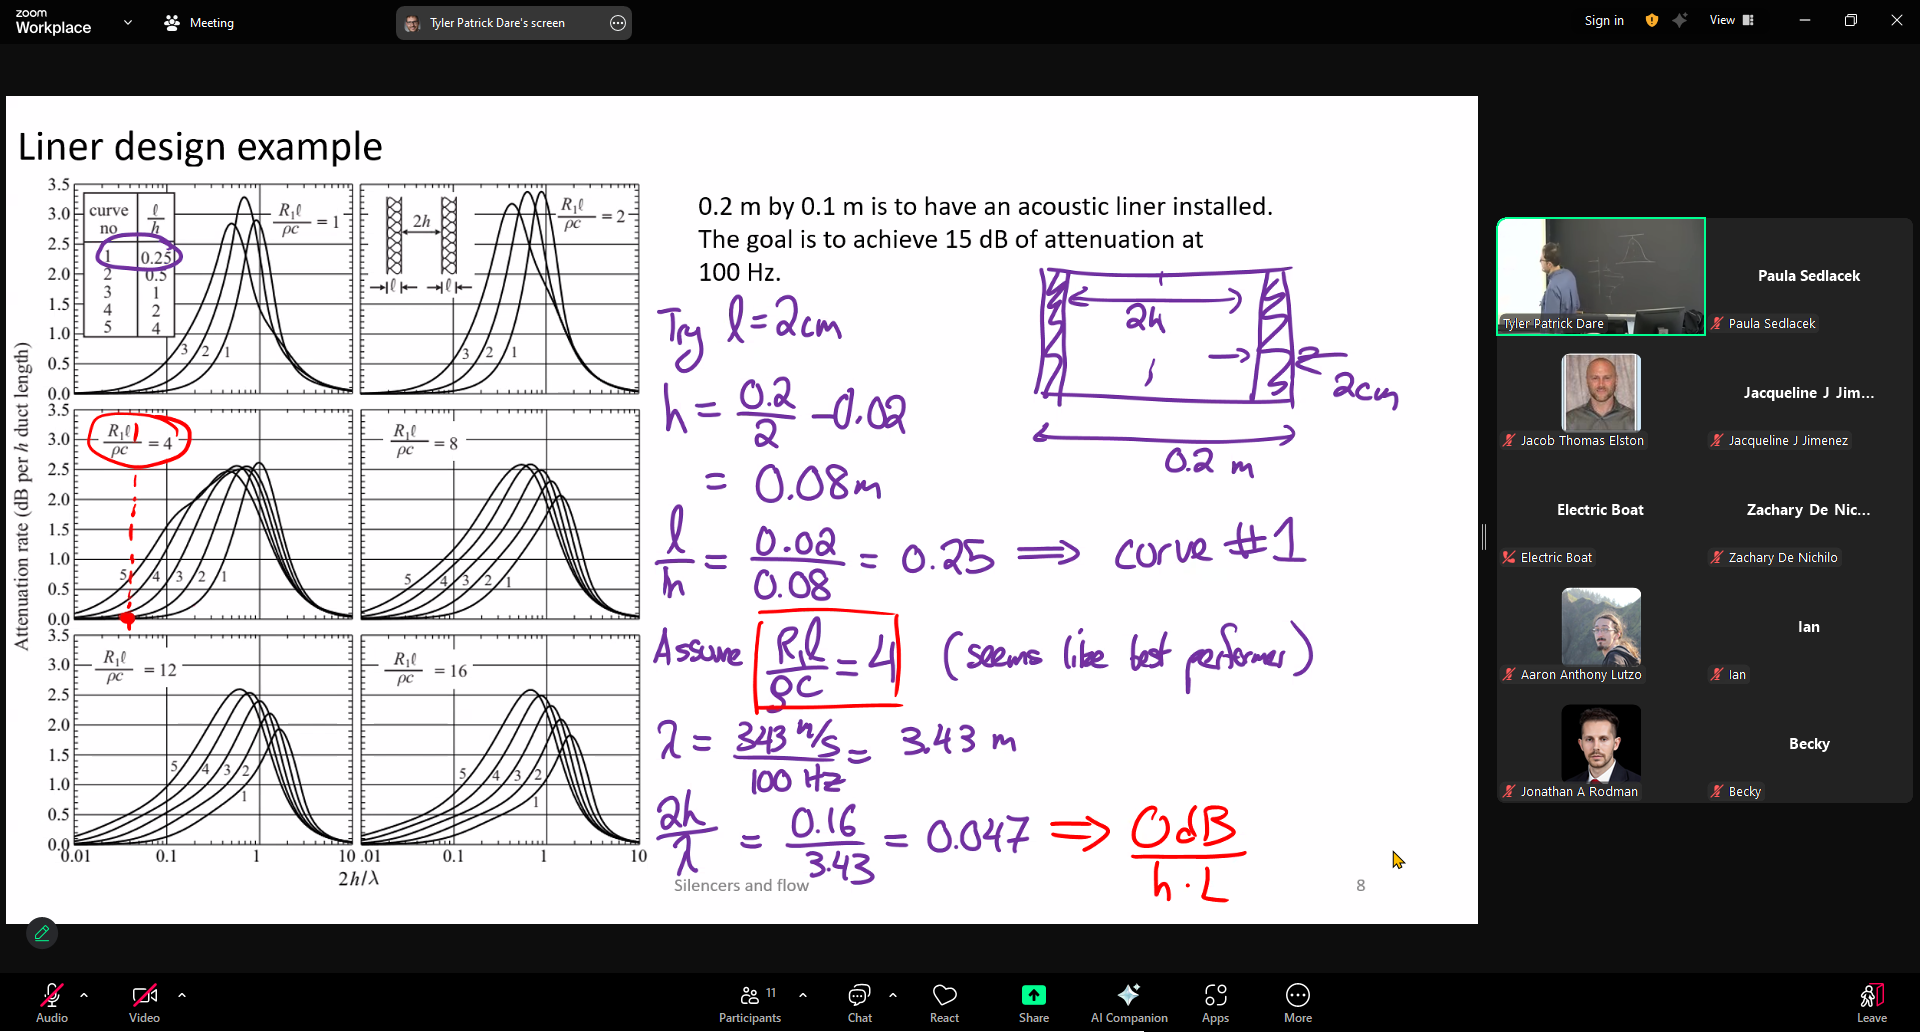 zoom
Workplace
Meeting
Tyler Patrick Dare's screen
Sign in
View
Liner design example
Attenuation rate (dB per h duct length)
3.5
3.0
2.5
2.0
1.5
1.0
0.5
0.0
curve no ℓ/h
1 0.25
2 0.5
3 1
4 2
5 4
R₁ℓ/ρc = 1
3 2 1
2h
ℓ ℓ
R₁ℓ/ρc = 2
3 2 1
3.5
3.0
2.5
2.0
1.5
1.0
0.5
0.0
R₁ℓ/ρc = 4
5 4 3 2 1
R₁ℓ/ρc = 8
5 4 3 2 1
3.5
3.0
2.5
2.0
1.5
1.0
0.5
0.0
R₁ℓ/ρc = 12
5 4 3 2
1
R₁ℓ/ρc = 16
5 4 3 2
1
0.01 0.1 1 10 .01 0.1 1 10
2h/λ
0.2 m by 0.1 m is to have an acoustic liner installed.
The goal is to achieve 15 dB of attenuation at
100 Hz.
Try ℓ = 2cm
h = 0.2/2 - 0.02
= 0.08m
ℓ/h = 0.02/0.08 = 0.25 ⟹ curve #1
Assume R₁ℓ/ρc = 4 (seems like best performer)
λ = 343 m/s / 100 Hz = 3.43 m
2h/λ = 0.16/3.43 = 0.047 ⟹ 0dB/h·L
2h
2cm
0.2 m
Silencers and flow
8
Tyler Patrick Dare
Paula Sedlacek
Paula Sedlacek
Jacob Thomas Elston
Jacqueline J Jim...
Jacqueline J Jimenez
Electric Boat
Electric Boat
Zachary De Nic...
Zachary De Nichilo
Aaron Anthony Lutzo
Ian
Ian
Jonathan A Rodman
Becky
Becky
Audio
Video
Participants
11
Chat
React
Share
AI Companion
Apps
More
Leave